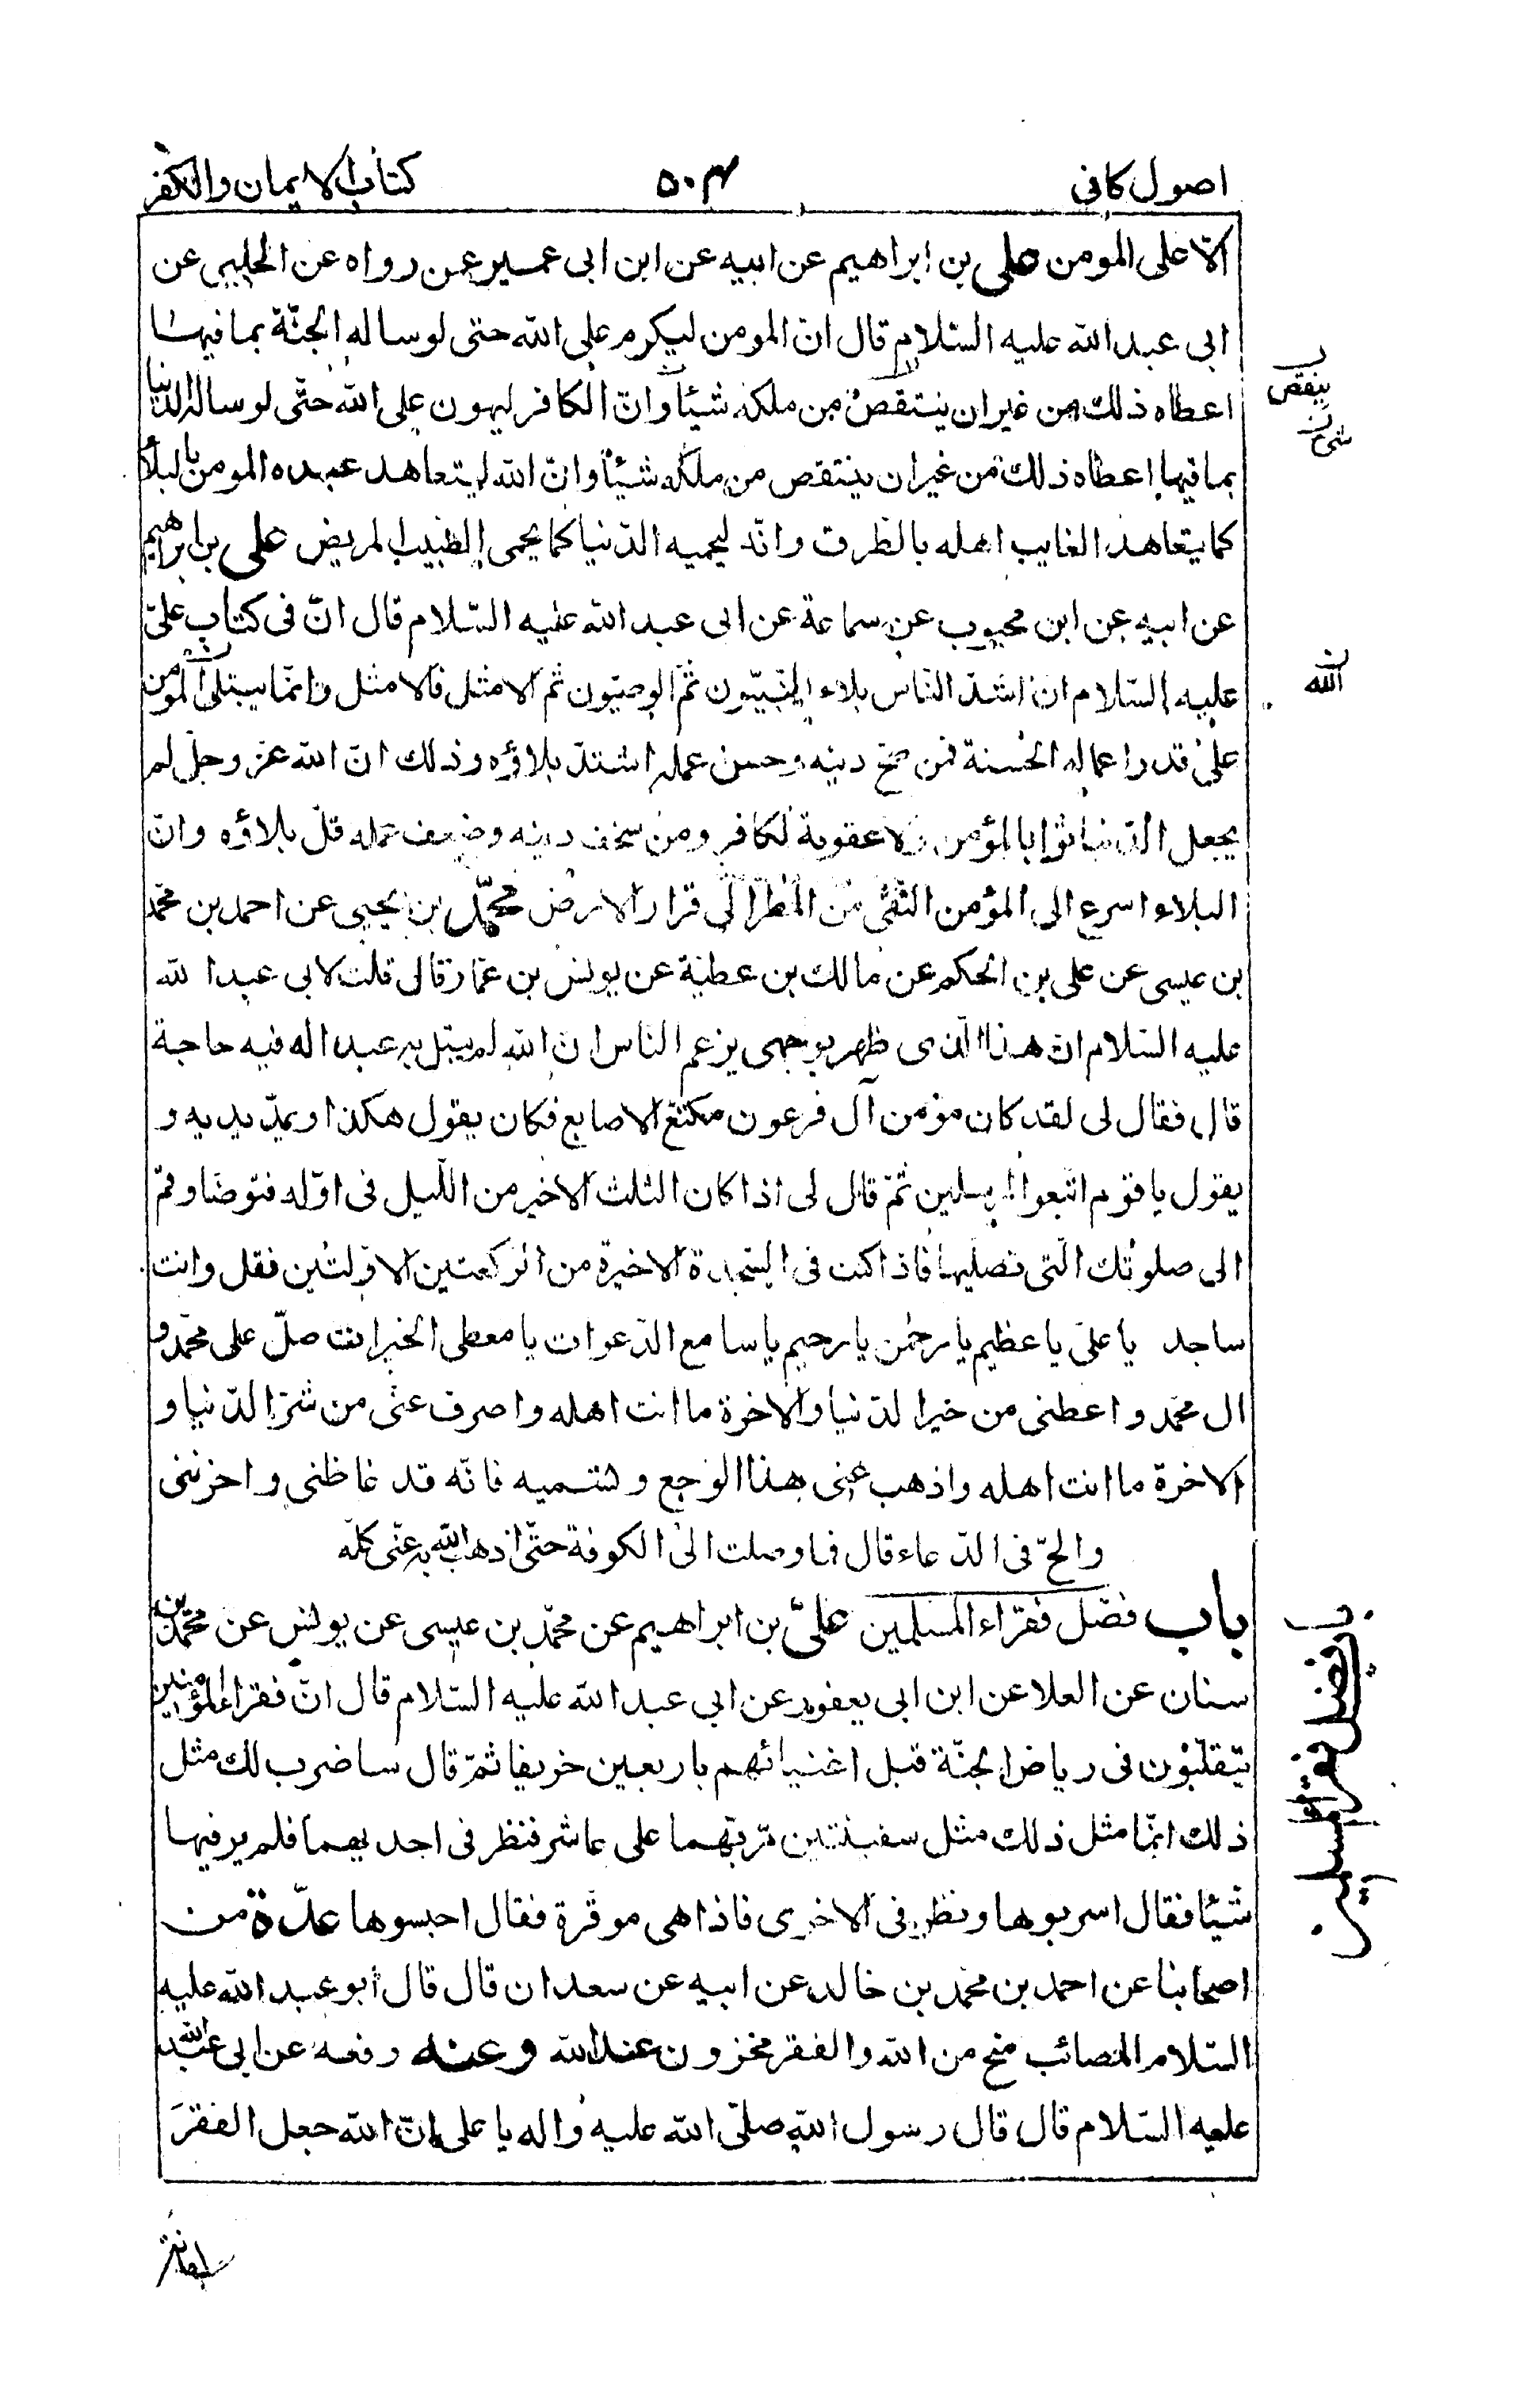 اصول كافى ۵۰۴ كتاب الايمان والكفر
الّا على المومن على بن ابراهيم عن ابيه عن ابن ابى عمير عمن رواه عن الحلبى عن
ابى عبد الله عليه السّلام قال انّ المومن ليكرم على الله حتى لو ساله الجنّة بما فيها
اعطاه ذلك من غير ان ينتقص من ملكه شيئا وانّ الكافر ليهون على الله حتّى لو ساله الدنيا
بما فيها اعطاه ذلك من غير ان ينتقص من ملكه شيئا وانّ الله ليتعاهد عبده المومن بالبلأ
كما يتعاهد الغايب اهله بالطرف وانّه ليحميه الدّنيا كما يحمى الطبيب المريض على بن ابراهيم
عن ابيه عن ابن محبوب عن سماعة عن ابى عبد الله عليه السّلام قال انّ فى كتاب علىّ
عليه السّلام ان اشدّ النّاس بلاء النّبيّون ثمّ الوصيّون ثم الامثل فالامثل وانّما يبتلى المومن
على قدر اعماله الحسنة فمن صحّ دينه وحسن عمله اشتدّ بلاؤه وذلك انّ الله عزّ وجلّ لم
يجعل الدّنيا ثوابا لمؤمن ولا عقوبة لكافر ومن سخف دينه وضعف عمله قلّ بلاؤه وانّ
البلاء اسرع الى المؤمن التّقىّ من المطر الى قرار الارض محمّد بن يحيى عن احمد بن محمّد
بن عيسى عن على بن الحكم عن مالك بن عطيّة عن يونس بن عمّار قال قلت لابى عبد الله
عليه السّلام انّ هذا الّذى ظهر بوجهى يزعم الناس انّ الله لم يبتل به عبدا له فيه حاجة
قال فقال لى لقد كان مؤمن آل فرعون مكنّع الاصابع فكان يقول هكذا ويمدّ يديه و
يقول يا قوم اتّبعوا المرسلين ثمّ قال لى اذا كان الثلث الاخير من اللّيل فى اوّله فتوضّا وقم
الى صلوتك الّتى تصلّيها فاذا كنت فى السّجدة الاخيرة من الركعتين الاوّلتين فقل وانت
ساجد يا علىّ يا عظيم يا رحمٰن يا رحيم يا سامع الدّعوات يا معطى الخيرات صلّ على محمّد و
ال محمّد واعطنى من خير الدّنيا والاخرة ما انت اهله واصرف عنّى من شرّ الدّنيا و
الاخرة ما انت اهله واذهب عنى هذا الوجع وتسميه فانّه قد غاظنى واحزننى
والحّ فى الدّعاء قال فما وصلت الى الكوفة حتّى اذهب الله به عنّى كلّه
باب فضل فقراء المسلمين علىّ بن ابراهيم عن محمّد بن عيسى عن يونس عن محمّد بن
سنان عن العلا عن ابن ابى يعفور عن ابى عبد الله عليه السّلام قال انّ فقراء المؤمنين
يتقلّبون فى رياض الجنّة قبل اغنيائهم باربعين خريفا ثمّ قال ساضرب لك مثل
ذلك انّما مثل ذلك مثل سفينتين مرّ بهما على عاشر فنظر فى احديهما فلم ير فيها
شيئا فقال اسربوها ونظر فى الاخرى فاذا هى موقرة فقال احبسوها عدّة من
اصحابنا عن احمد بن محمّد بن خالد عن ابيه عن سعدان قال قال ابو عبد الله عليه
السّلام المصائب منح من الله والفقر مخزون عند الله وعنه رفعه عن ابى عبد الله
عليه السّلام قال قال رسول الله صلّى الله عليه واله يا على انّ الله جعل الفقرَ
ينقص
شئ
الله
باب فضل فقراء المسلمين
امانة